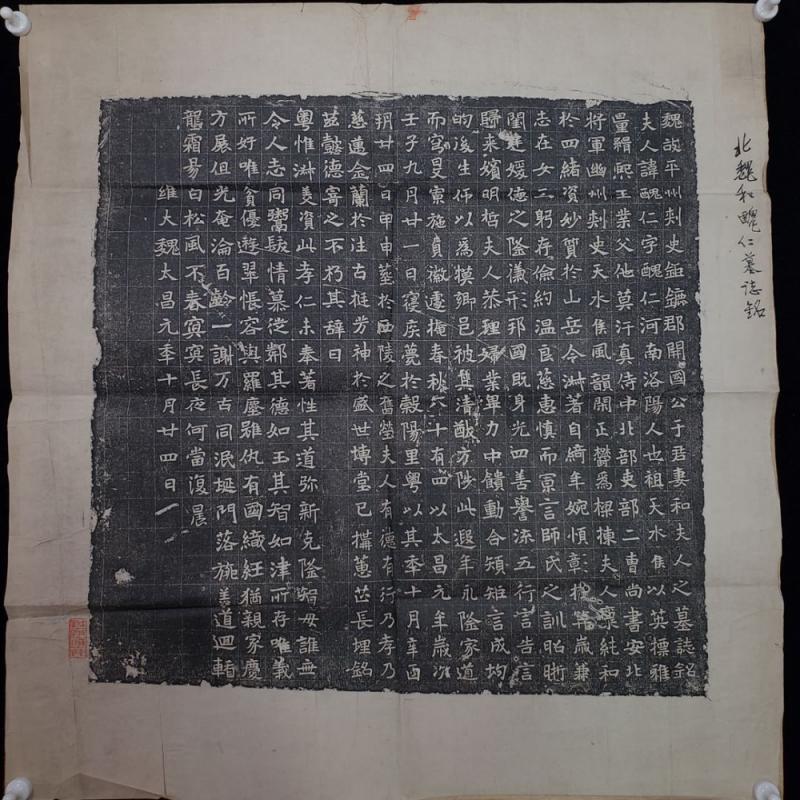 北魏和醜仁墓誌銘
魏故平州刺史鉅鏕郡開國公于君妻和夫人之墓誌銘
夫人諱醜仁字醜仁河南洛陽人也祖天水侯以英標雅
量緝熙王業父他莫汗真侍中北部吏部二曹尚書安北
將軍幽州刺史天水侯風韻閑正鬱為樑棟夫人稟純和
於四緒資妙質於山岳令淑著自綺年婉慎章於齔歲兼
志在女工躬存儉約温良慈惠慎而寡言師氏之訓昭晣
閨庭媛德之隆儀形邦國既身光四善譽流五行言告言
歸来嬪明哲夫人恭釐婦業畢力中饋動合規矩言成均
的後生仰以為模鄉邑被其清猷方陟此遐年永隆家道
而穹旻索施貞徽遽掩春秋六十有四以太昌元年歲次
壬子九月廿一日寢疾薨於穀陽里粤以其年十月辛酉
朔廿四日甲申塟於西陵之舊塋夫人有德有行乃孝乃
慈蓮金蘭於注古挺芳神於盛世博堂已搆蕙芷長埋銘
茲懿德寄之不朽其辞曰
粤惟淋羙資此孝仁未奉著性其道弥新克隆媦母誰無
令人志同鬻髮情慕從鄰其德如玉其智如津所存唯義
所好唯貧優遊翠悵容與羅塵雖仇有國織紝猶親家慶
方展但光奄淪百齡一謝万古同泯埏門落旐羙道迴輴
壟霜易白松風不春寘寘長夜何當復晨
維大魏太昌元年十月廿四日